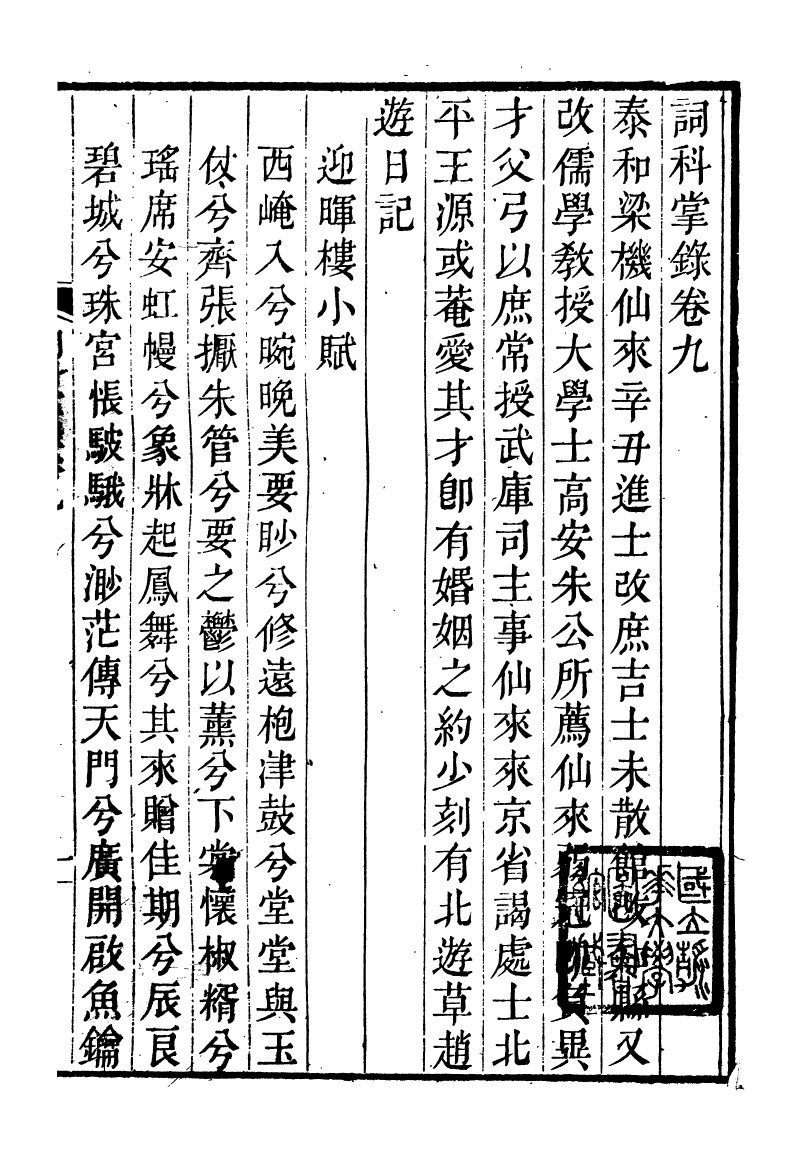 詞科掌錄卷九
泰和梁機仙來辛丑進士改庶吉士未散館改知縣又
改儒學教授大學士高安朱公所薦仙來弱冠負異
才父弓以庶常授武庫司主事仙來來京省謁處士北
平王源或菴愛其才卽有婚姻之約少刻有北遊草趙
遊日記
迎暉樓小賦
西崦入兮晼晚美要眇兮修遠枹津鼓兮堂堂與玉
仗兮齊張擫朱管兮要之鬱以薰兮下裳懷椒糈兮
瑤席安虹幔兮象牀起鳳舞兮其來贈佳期兮辰良
碧城兮珠宮悵駊騀兮渺茫傳天門兮廣開啟魚鑰